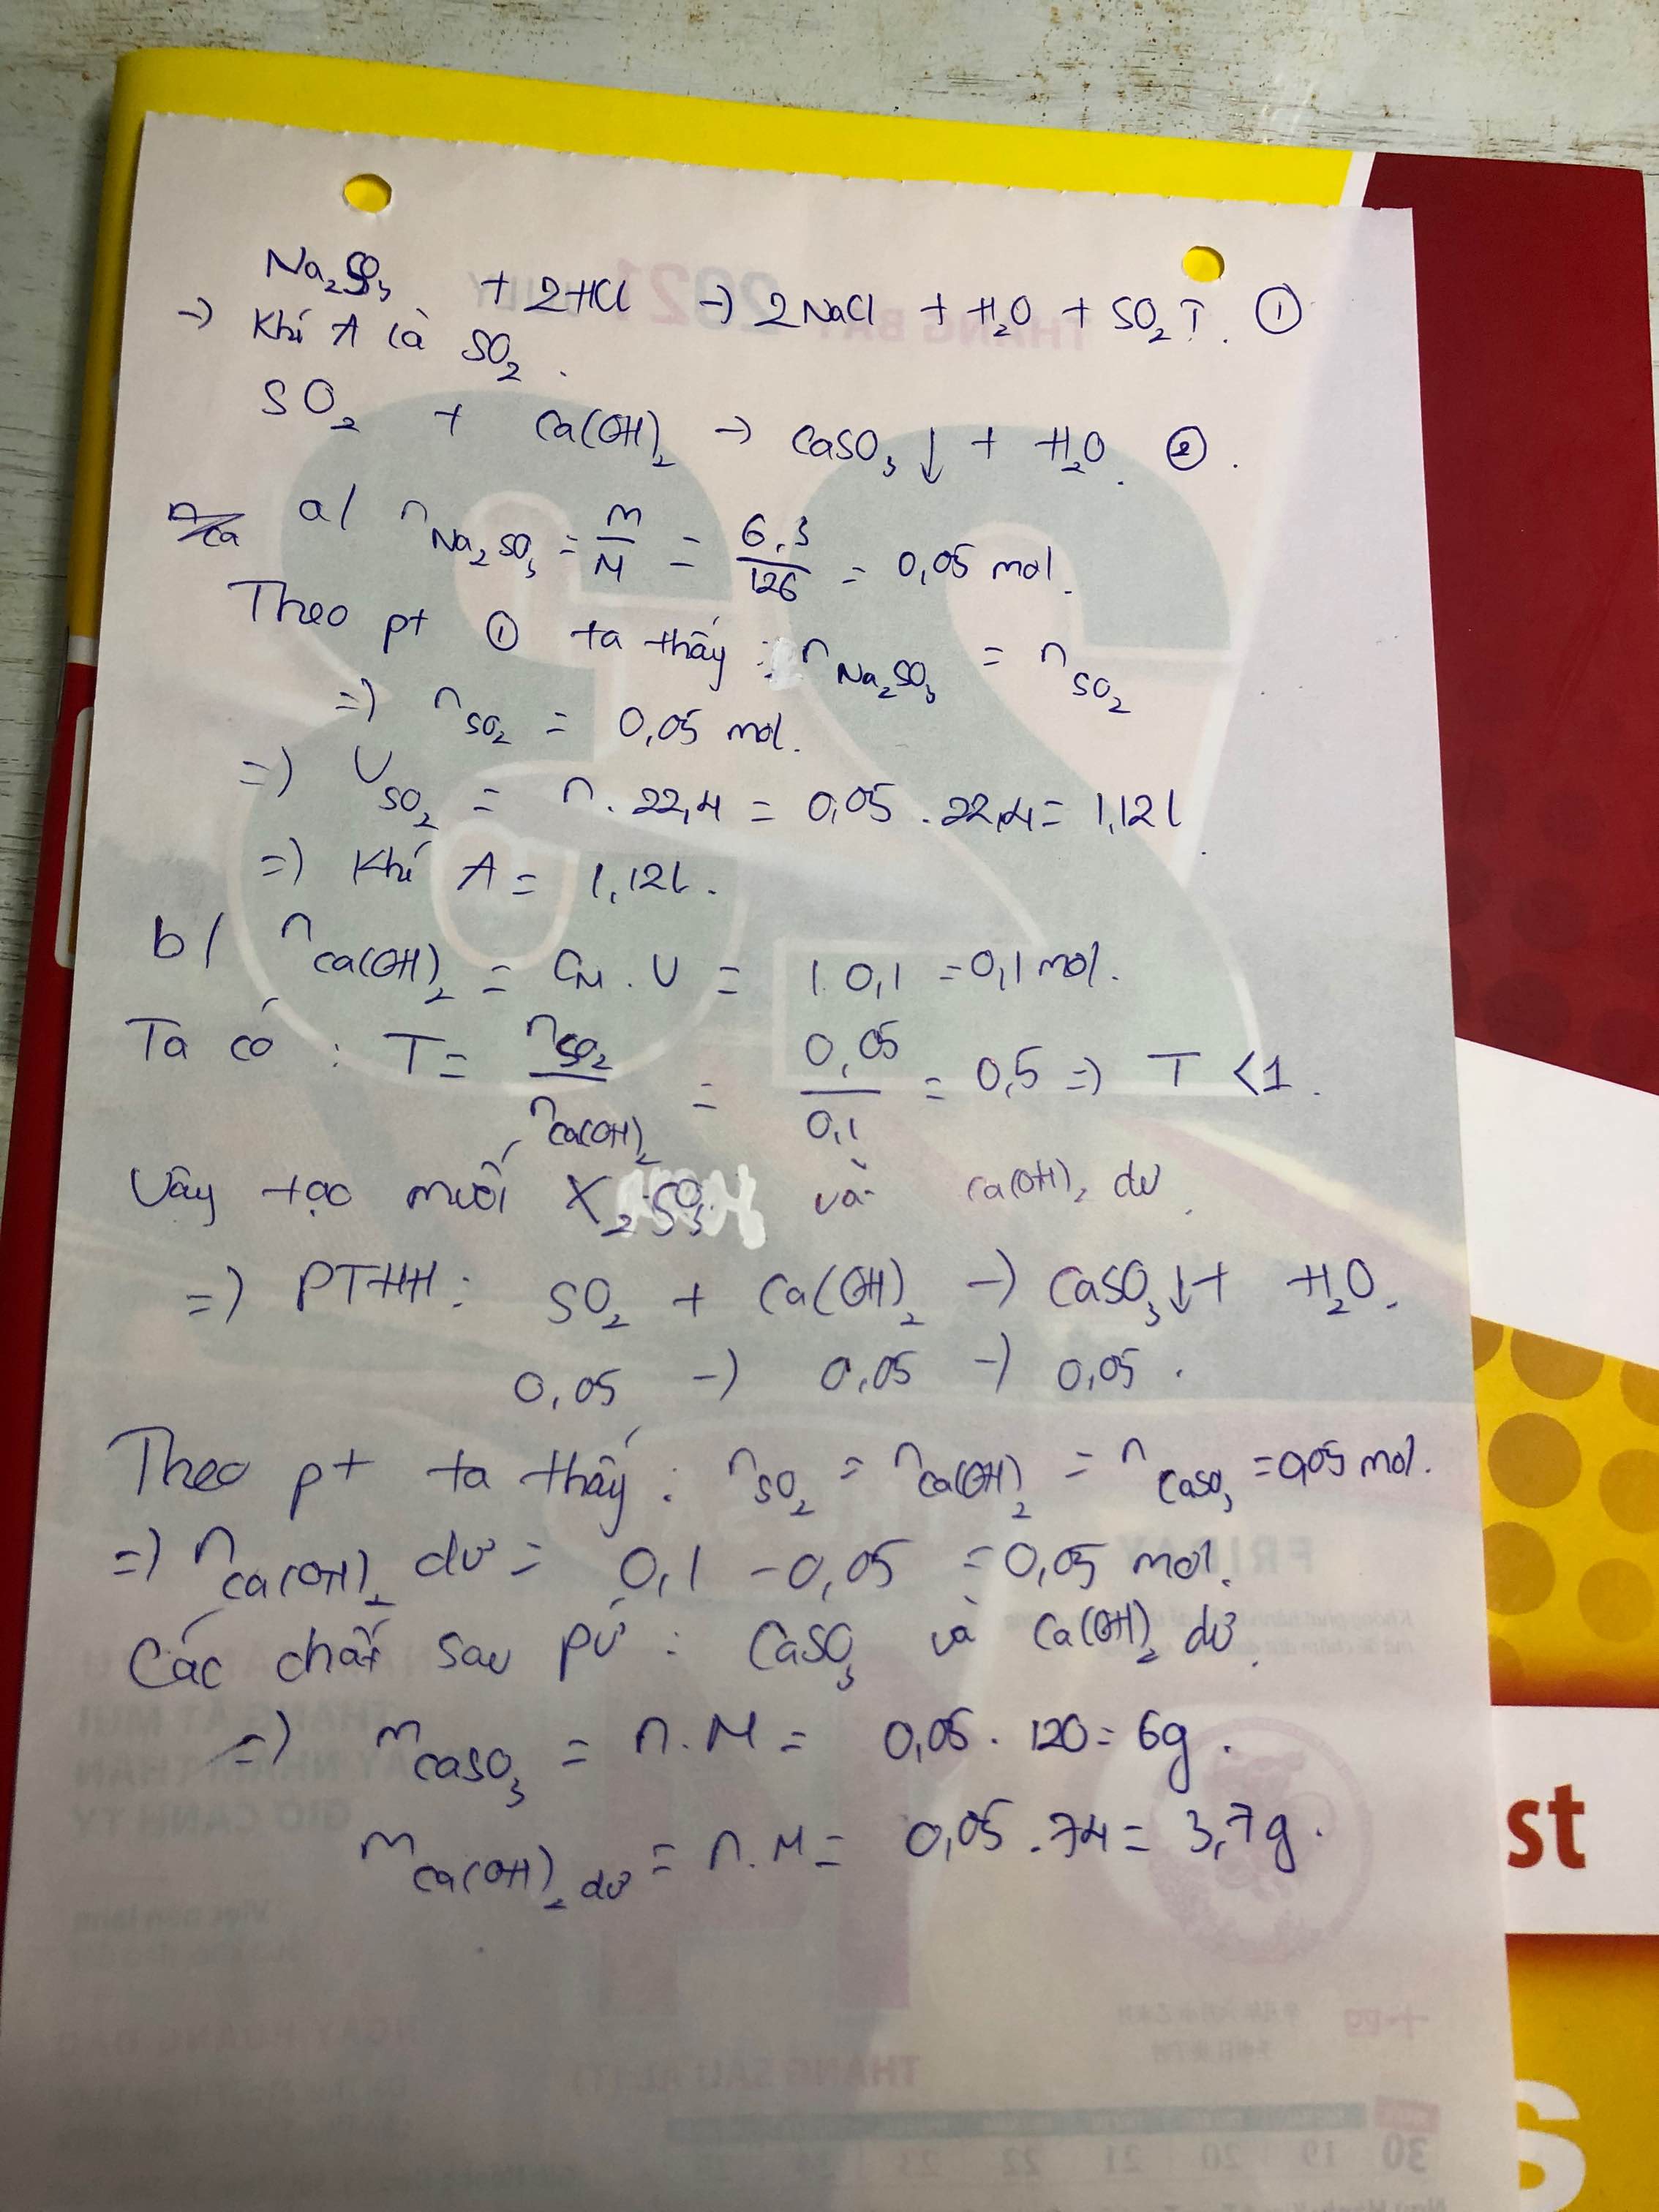 Na₂SO₃ + 2HCl → 2NaCl + H₂O + SO₂↑. ①
→ Khí A là SO₂.
SO₂ + Ca(OH)₂ → CaSO₃↓ + H₂O. ②.
a/ n Na₂SO₃ = m/M = 6,3/126 = 0,05 mol.
Theo pt ① ta thấy : n Na₂SO₃ = n SO₂
=) n SO₂ = 0,05 mol.
=) V SO₂ = n. 22,4 = 0,05 . 22,4 = 1,12l
=) Khí A = 1,12l.
b/ n Ca(OH)₂ = CM . V = 1. 0,1 = 0,1 mol.
Ta có : T = n SO₂/n Ca(OH)₂ = 0,05/0,1 = 0,5 =) T < 1.
Vậy tạo muối X₂SO₃ và Ca(OH)₂ dư.
=) PTHH: SO₂ + Ca(OH)₂ → CaSO₃↓ + H₂O.
0,05 → 0,05 → 0,05.
Theo pt ta thấy : n SO₂ = n Ca(OH)₂ = n CaSO₃ = 0,05 mol.
=) n Ca(OH)₂ dư = 0,1 - 0,05 = 0,05 mol.
Các chất sau pứ : CaSO₃ và Ca(OH)₂ dư.
=) m CaSO₃ = n.M = 0,05. 120 = 6g.
m Ca(OH)₂ dư = n.M = 0,05 .74 = 3,7g.
st
S